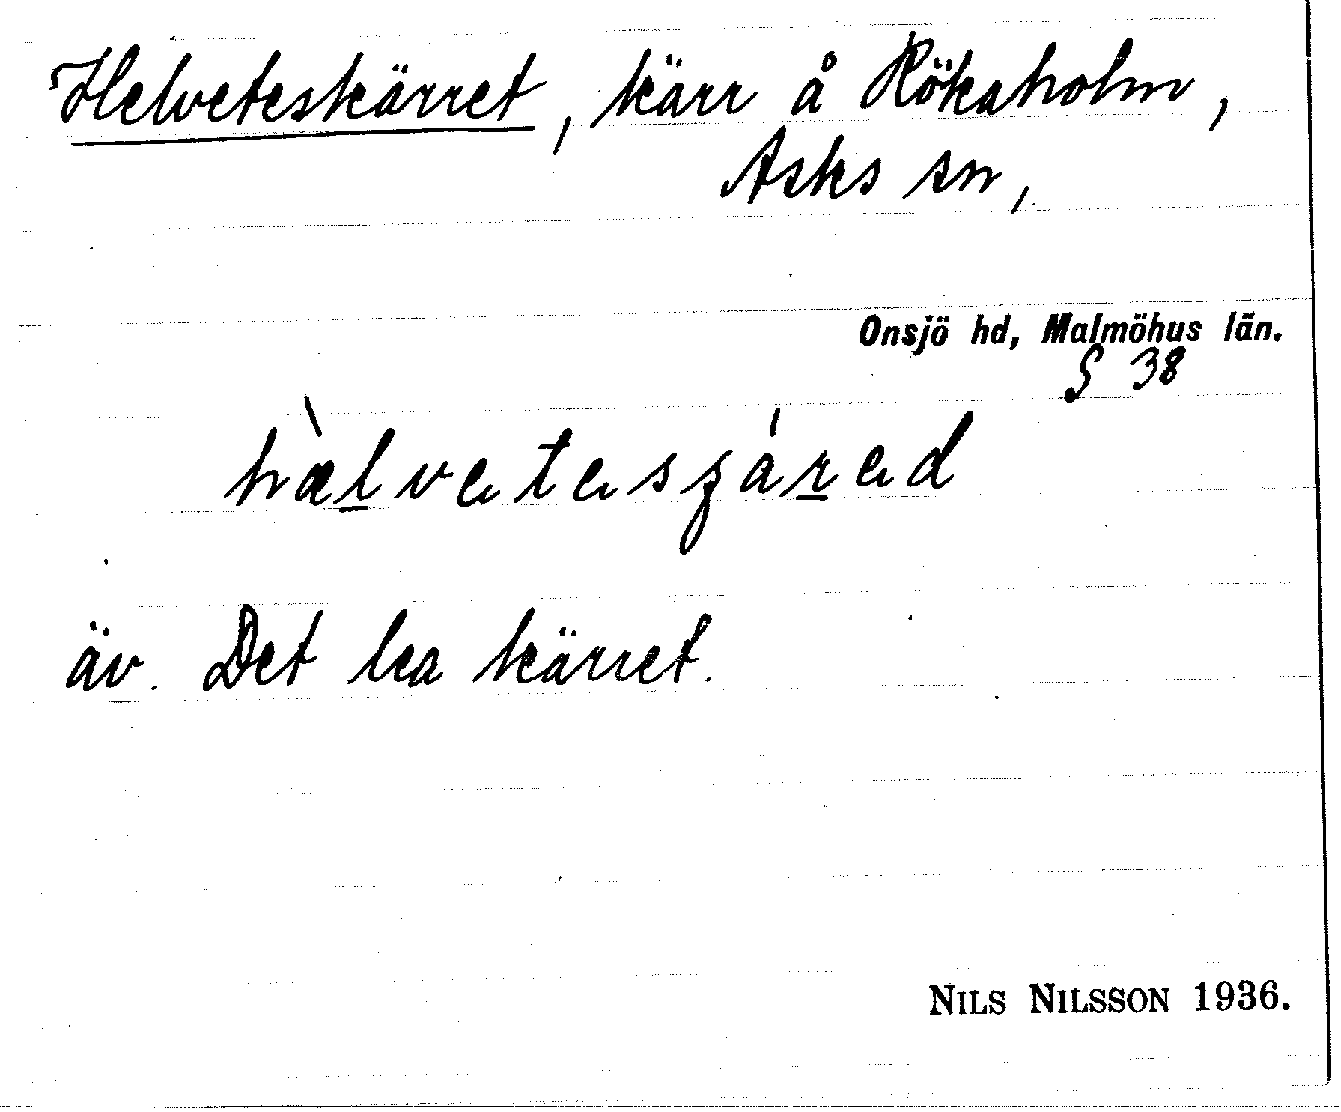 Helveteskärret, kärr å Rökaholm,
Asks sn,
Onsjö hd, Malmöhus län.
S 38
hæ̀lvetesʒáred
äv. Det lea kärret.
NILS NILSSON 1936.